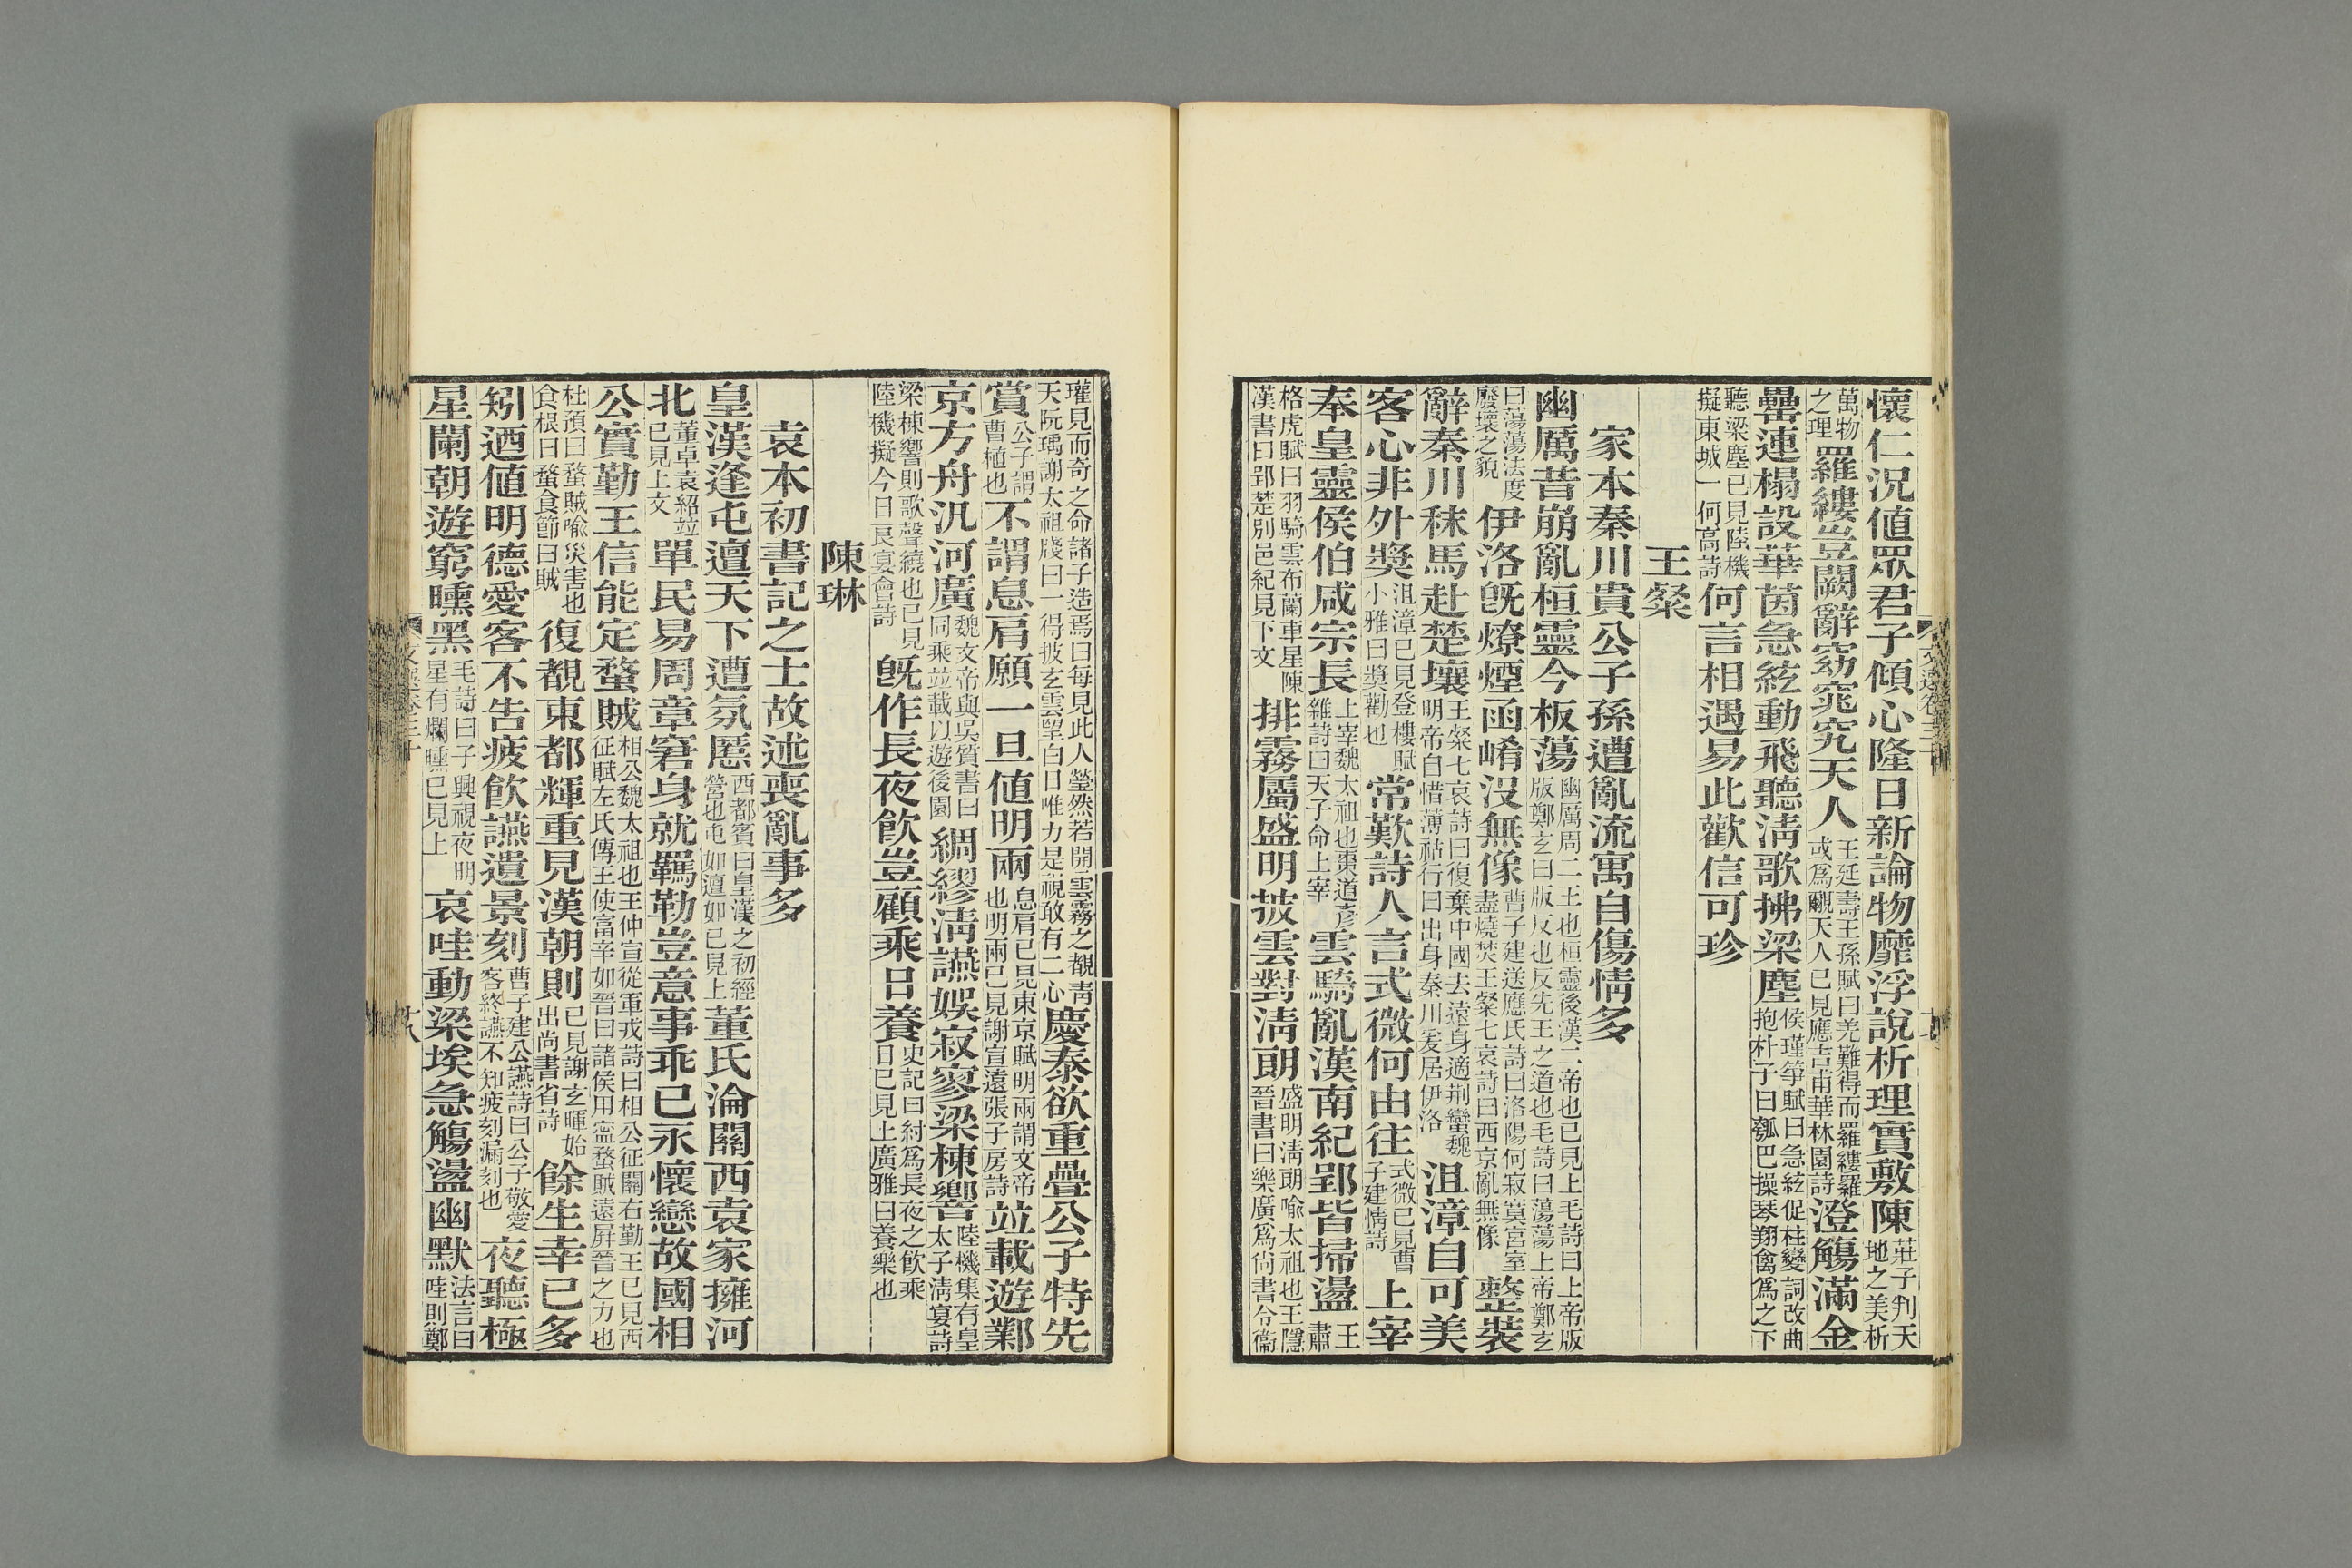 懷仁況值眾君子傾心隆日新論物靡浮說析理實敷陳莊子判天地之美析
萬物之理羅縷豈闕辭窈窕究天人王延壽王孫賦曰羌難得而羅縷羅或為覼天人已見應吉甫華林園詩澄觴滿金
罍連榻設華茵急絃動飛聽清歌拂梁塵侯瑾箏賦曰急絃促柱變詞改曲抱朴子曰瓠巴操琴翔禽為之下
聽梁塵已見陸機擬東城一何高詩何言相遇易此歡信可珍
王粲
家本秦川貴公子孫遭亂流寓自傷情多
幽厲昔崩亂桓靈今板蕩幽厲周二王也桓靈後漢二帝也已見上毛詩曰上帝版版鄭玄曰版反也反先王之道也毛詩曰蕩蕩上帝鄭玄
曰蕩蕩法度廢壞之貌伊洛旣燎煙函崤沒無像曹子建送應氏詩曰洛陽何寂寞宮室盡燒焚王粲七哀詩曰西京亂無像整裝
辭秦川秣馬赴楚壤王粲七哀詩曰復棄中國去遠身適荊蠻魏明帝自惜薄祜行曰出身秦川爰居伊洛沮漳自可美
客心非外獎沮漳已見登樓賦小雅曰獎勸也常歎詩人言式微何由往式微已見曹子建情詩上宰
奉皇靈侯伯咸宗長上宰魏太祖也棗道彥雜詩曰天子命上宰雲騎亂漢南紀郢皆掃盪王肅
格虎賦曰羽騎雲布蘭車星陳漢書曰郢楚別邑紀見下文排霧屬盛明披雲對清朗盛明清朗喻太祖也王隱晉書曰樂廣為尙書令衞
瓘見而奇之命諸子造焉曰每見此人瑩然若開雲霧之覩青天阮瑀謝太祖牋曰一得披玄雲望白日唯力是視敢有二心慶泰欲重疊公子特先
賞公子謂曹植也不謂息肩願一旦值明兩息肩已見東京賦明兩謂文帝也明兩已見謝宣遠張子房詩竝載遊鄴
京方舟汎河廣魏文帝與吳質書曰同乘竝載以遊後園綢繆清讌娛寂寥梁棟響陸機集有皇太子清宴詩
梁棟響則歌聲繞也已見陸機擬今日良宴會詩旣作長夜飲豈顧乘日養史記曰紂為長夜之飲乘日已見上廣雅曰養樂也
陳琳
袁本初書記之士故述喪亂事多
皇漢逢屯邅天下遭氛慝西都賓曰皇漢之初經營也屯如邅如已見上董氏淪關西袁家擁河
北董卓袁紹竝已見上文單民易周章窘身就羈勒豈意事乖已永懷戀故國相
公實勤王信能定蝥賊相公魏太祖也王仲宣從軍戎詩曰相公征關右勤王已見西征賦左氏傳王使富辛如晉曰諸侯用寍蝥賊遠屛晉之力也
杜預曰蝥賊喻災害也食根曰蝥食節曰賊復覩東都輝重見漢朝則已見謝玄暉始出尚書省詩餘生幸已多
矧迺值明德愛客不告疲飲讌遺景刻曹子建公讌詩曰公子敬愛客終讌不知疲刻漏刻也夜聽極
星闌朝遊窮曛黑毛詩曰子興視夜明星有爛曛已見上哀哇動梁埃急觴盪幽默法言曰哇則鄭